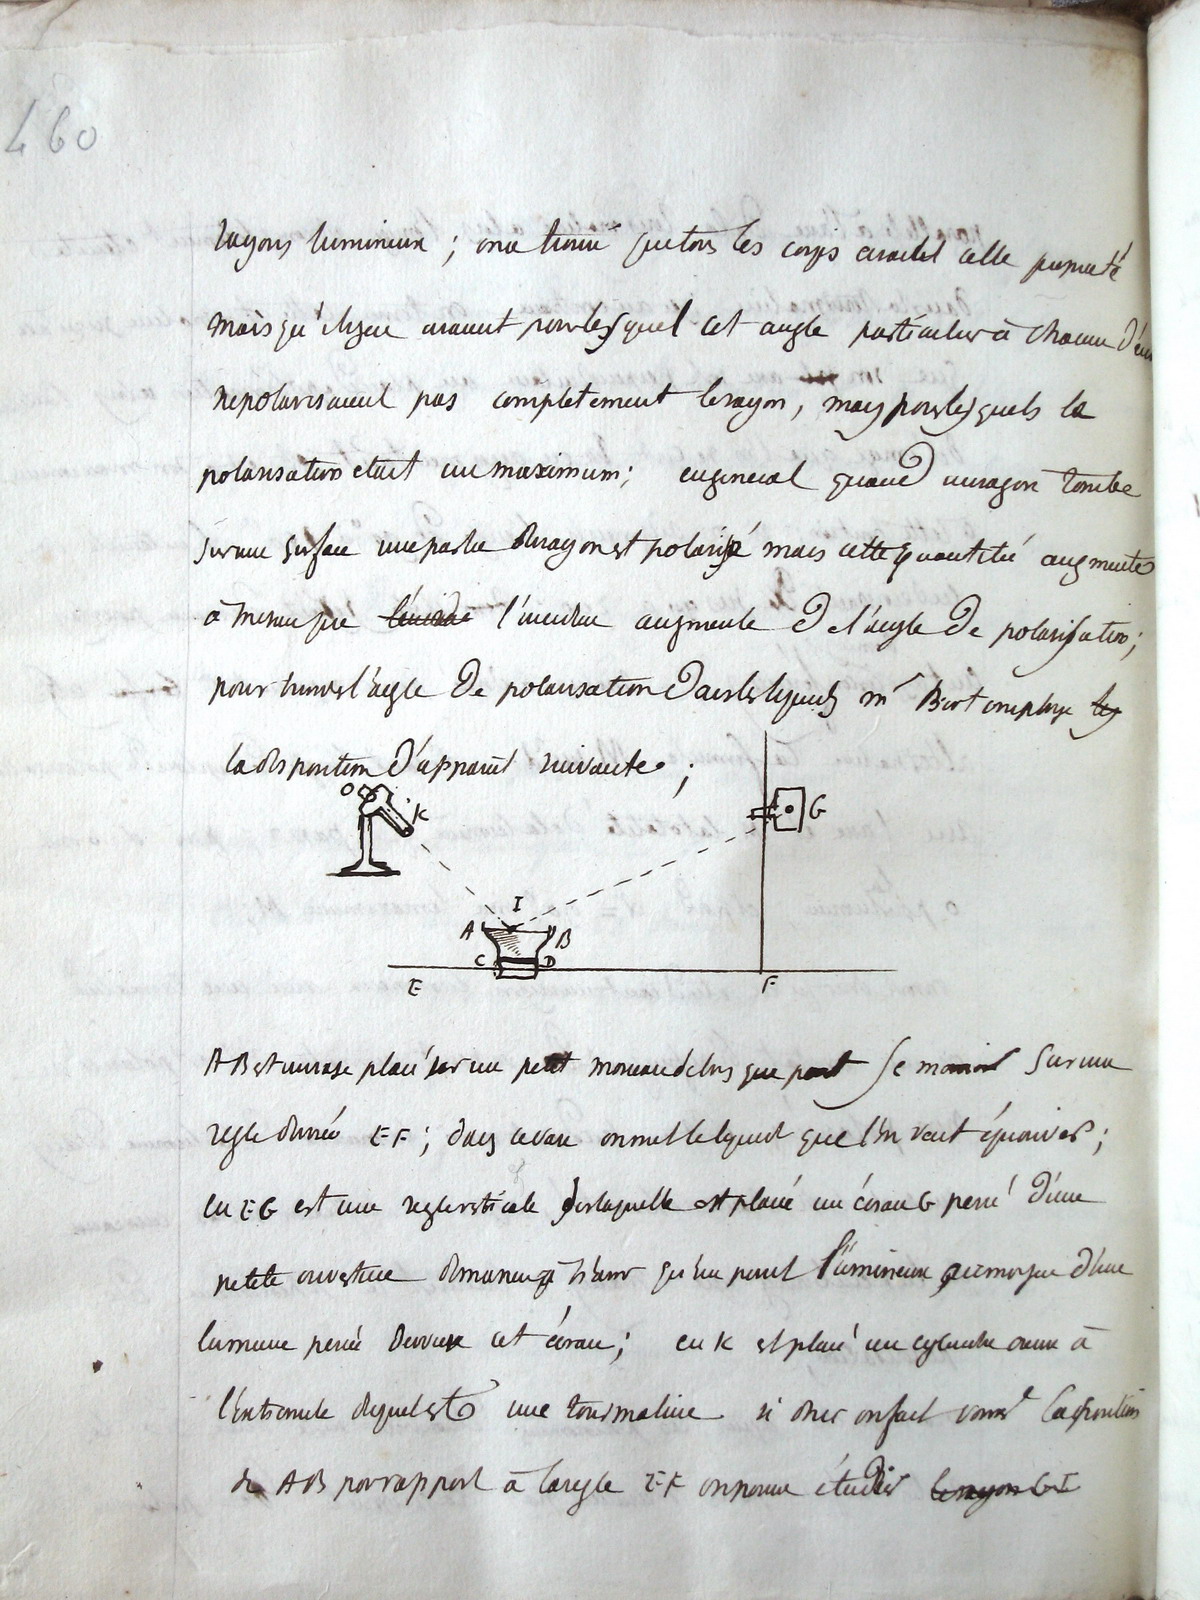 460
rayons lumineux ; on a trouvé que tous les corps avaient cette propriété
mais qu'il y en avaient pour lesquel cet angle particulier à chacun d'eux
ne polarisaient pas completement le rayon, mais pour lesquels la
polarisation etait un maximum ; en general quand un rayon tombe
sur une surface une partie du rayon est polarisé mais cette quantité augmente
à mesure que l'incidence augmente de l'angle de polarisation ;
pour trouver l'angle de polarisation dans les liquides mr Biot employe les
la disposition d'appareil suivante ;
O K G
I
A B
C D
E F
AB est un vase placé sur un petit morceau de bois que peut se mouvoir sur une
regle divisée EF ; dans ce vase on met le liquide que l'on veut éprouver ;
en EG est une regle verticale sur laquelle est placé un écran G percé d'une
petite ouverture de maniere à n'avoir qu'un point lumineux d'une
lumiere placée derriere cet écran ; en K est placé un cylindre creux à
l'extremité duquel est une tourmaline si donc on fait varier la position
de AB par rapport à la regle EF on pourra étudier le rayon GI